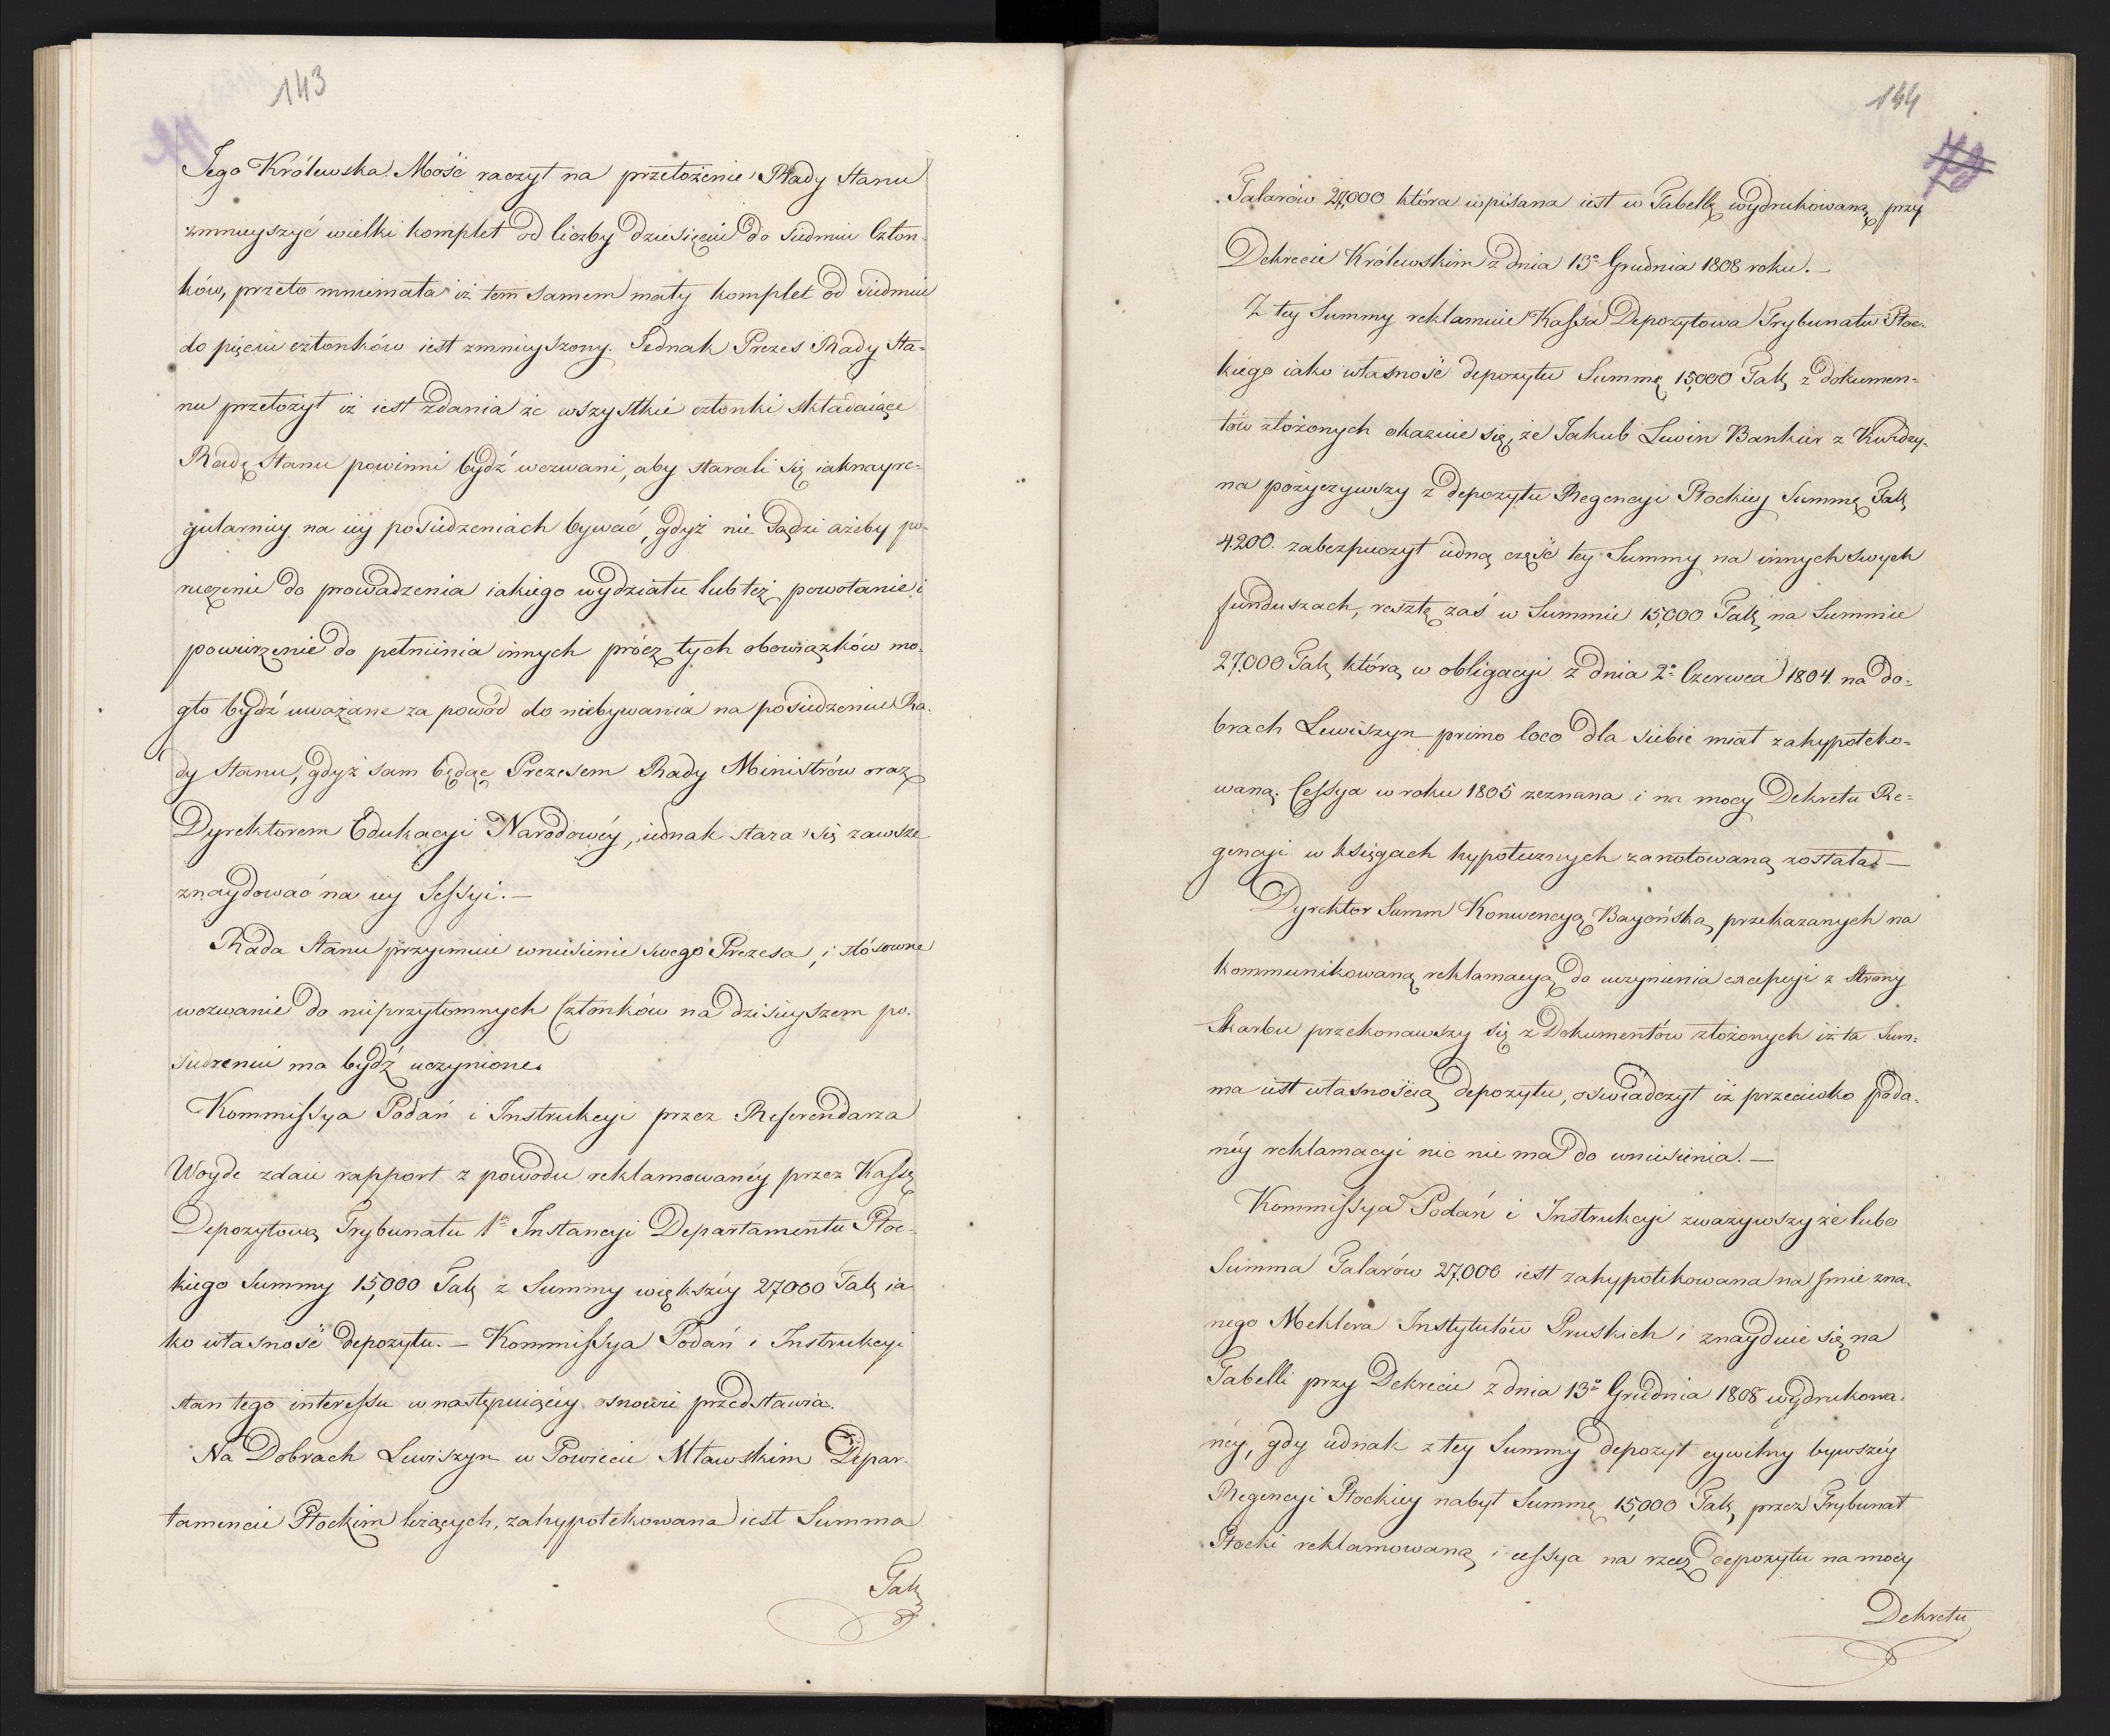 143
Jego Królewska Mość raczył na przełożenie Rady Stanu
zmnieyszyć wielki komplet od liczby dziesięciu do siedmiu Człon-
ków, przeto mniemała iż tem samem mały komplet od siedmiu
do pięciu członków iest zmnieyszony. Jednak Prezes Rady Sta-
nu przełożył iż iest zdania że wszystkie członki składaiące
Radę Stanu powinni bydź wezwani, aby starali się iaknayre-
gularniey na iey posiedzeniach bywać, gdyż nie sądzi ażeby po-
ruczenie do prowadzenia iakiego wydziału lub też powołanie i
powierzenie do pełnienia innych prócz tych obowiązków mo-
gło bydź uważane za powód do niebywania na posiedzeniu Ra-
dy Stanu, gdyż sam będąc Prezesem Rady Ministrów oraz
Dyrektorem Edukacyi Narodowéy, iednak stara się zawsze
znaydować na iey Sessyi.—
Rada Stanu przyimuie wniesienie swego Prezesa, i stósowne
wezwanie do nieprzytomnych Członków na dzisieyszem po-
siedzeniu ma bydź uczynione.
Kommissya Podań i Instrukcyi przez Referendarza
Woyde zdaie rapport z powodu reklamowanéy przez Kassę
Depozytową Trybunału 1éy Instancyi Departamentu Płoc-
kiego Summy 15,000 Tal. z Summy większéy 27000 Tal. ia-
ko własność depozytu.— Kommissya Podań i Instrukcyi
stan tego interessu w następuiącéy osnowie przedstawia.
Na Dobrach Lewiszyn w Powiecie Mławskim Depar-
tamencie Płockim leżących, zahypotekowana iest Summa
Tal.
144
Talarów 27,000 która wpisana iest w Tabellę wydrukowaną przy
Dekrecie Królewskim z dnia 13º Grudnia 1808 roku.—
Z tey Summy reklamuie Kassa Depozytowa Trybunału Płoc-
kiego iako własność depozytu Summę 15,000 Tal. z dokumen-
tów złożonych okazuie się, że Jakub Lewin Bankier z Kwidzy-
na pożyczywszy z depozytu Regencyi Płockiey Summę Tal.
4200. zabezpieczył iedną część tey Summy na innych swych
funduszach, resztę zaś w Summie 15,000 Tal. na Summie
27,000 Tal. którą w obligacyi z dnia 2º Czerwca 1804. na do-
brach Lewiszyn primo loco dla siebie miał zahypoteko-
waną. Cessya w roku 1805 zeznana i na mocy Dekretu Re-
gencyi w księgach hypotecznych zanotowaną została.—
Dyrektor Summ Konwencyą Bayońską przekazanych na
kommunikowaną reklamacyą do uczynienia excepcyi z Strony
Skarbu przekonawszy się z Dokumentów złożonych iż ta Sum-
ma iest własnością depozytu, oświadczył iż przeciwko poda-
néy reklamacyi nic nie ma do wniesienia.—
Kommissya Podań i Instrukcyi zważywszy że lubo
Summa Talarów 27,000 iest zahypotekowana na Jmie zna-
nego Meklera Instytutów Pruskich i znayduie się na
Tabelli przy Dekrecie z dnia 13º Grudnia 1808 wydrukowa-
néy, gdy iednak z tey Summy depozyt cywilny bywszéy
Regencyi Płockiey nabył Summę 15,000 Tal. przez Trybunał
Płocki reklamowaną i cessya na rzecz depozytu na mocy
Dekretu